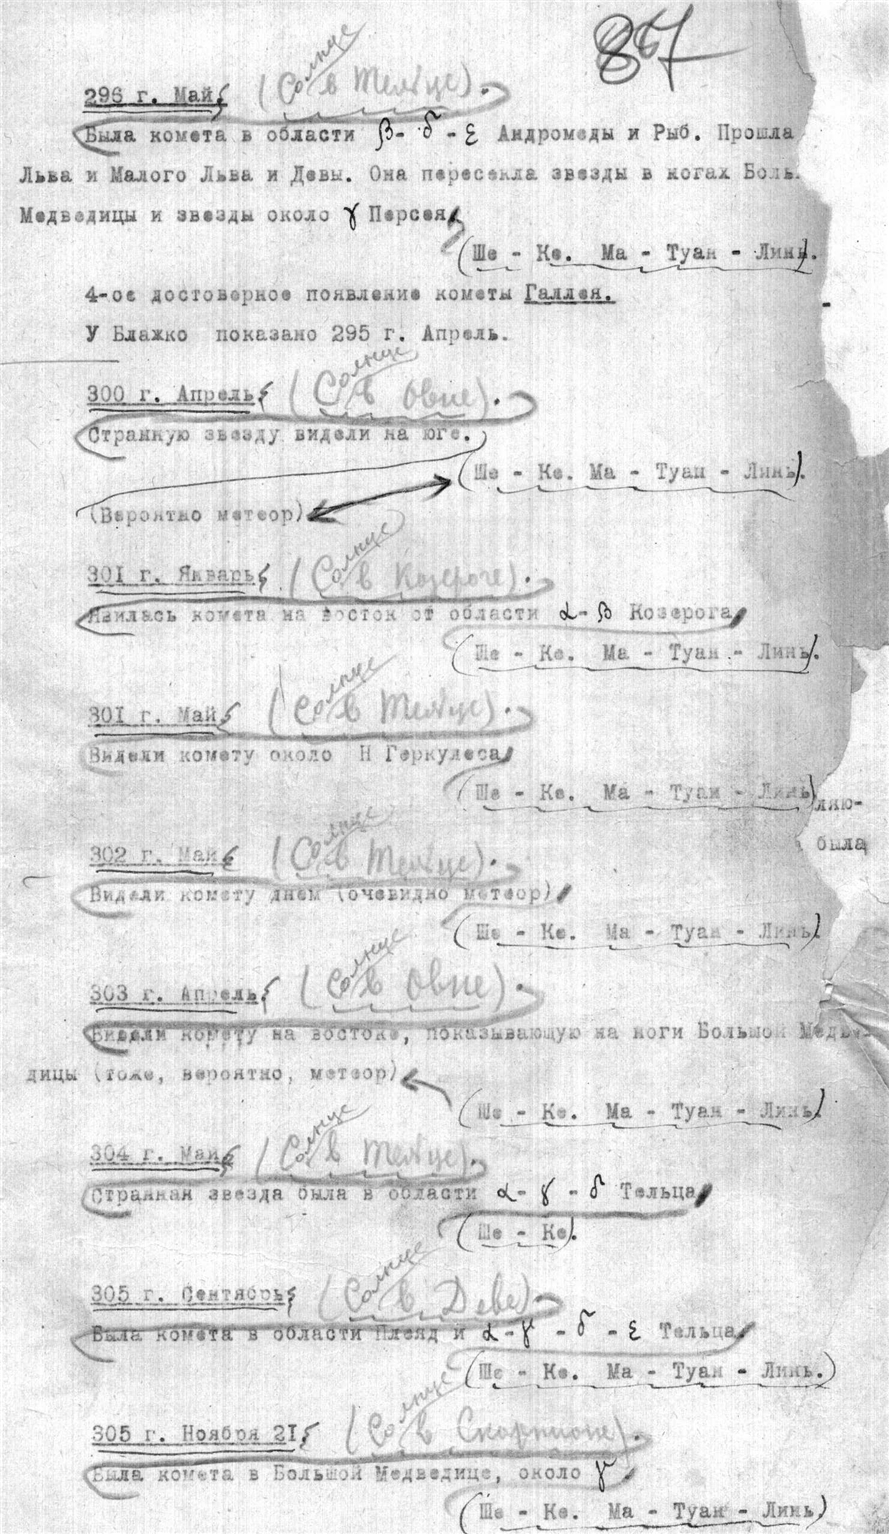 867
296 г. Май (Солнце в Тельце).
Была комета в области β - δ - ε Андромеды и Рыб. Прошла
Льва и Малого Льва и Девы. Она пересекла звезды в ногах Боль.
Медведицы и звезды около γ Персея
(Ше - Ке. Ма - Туан - Линь).
4-ое достоверное появление кометы Галлея.
У Блажко показано 295 г. Апрель.
300 г. Апрель (Солнце в Овне).
Странную звезду видели на юге.
(Ше - Ке. Ма - Туан - Линь).
(Вероятно метеор)
301 г. Январь (Солнце в Козероге).
Явилась комета на восток от области α - β Козерога
(Ше - Ке. Ма - Туан - Линь).
301 г. Май (Солнце в Тельце).
Видели комету около Н Геркулеса
(Ше - Ке. Ма - Туан - Линь)
ляю-
была
302 г. Май (Солнце в Тельце).
Видели комету днем (очевидно метеор)
(Ше - Ке. Ма - Туан - Линь)
303 г. Апрель (Солнце в Овне).
Видели комету на востоке, показывающую на ноги Большой Медве-
дицы (тоже, вероятно, метеор)
(Ше - Ке. Ма - Туан - Линь)
304 г. Май (Солнце в Тельце).
Странная звезда была в области α - γ - δ Тельца
(Ше - Ке).
305 г. Сентябрь (Солнце в Деве).
Была комета в области Плеяд и α - γ - δ - ε Тельца
(Ше - Ке. Ма - Туан - Линь.)
305 г. Ноября 21 (Солнце в Скорпионе).
Была комета в Большой Медведице, около γ.
(Ше - Ке. Ма - Туан - Линь)